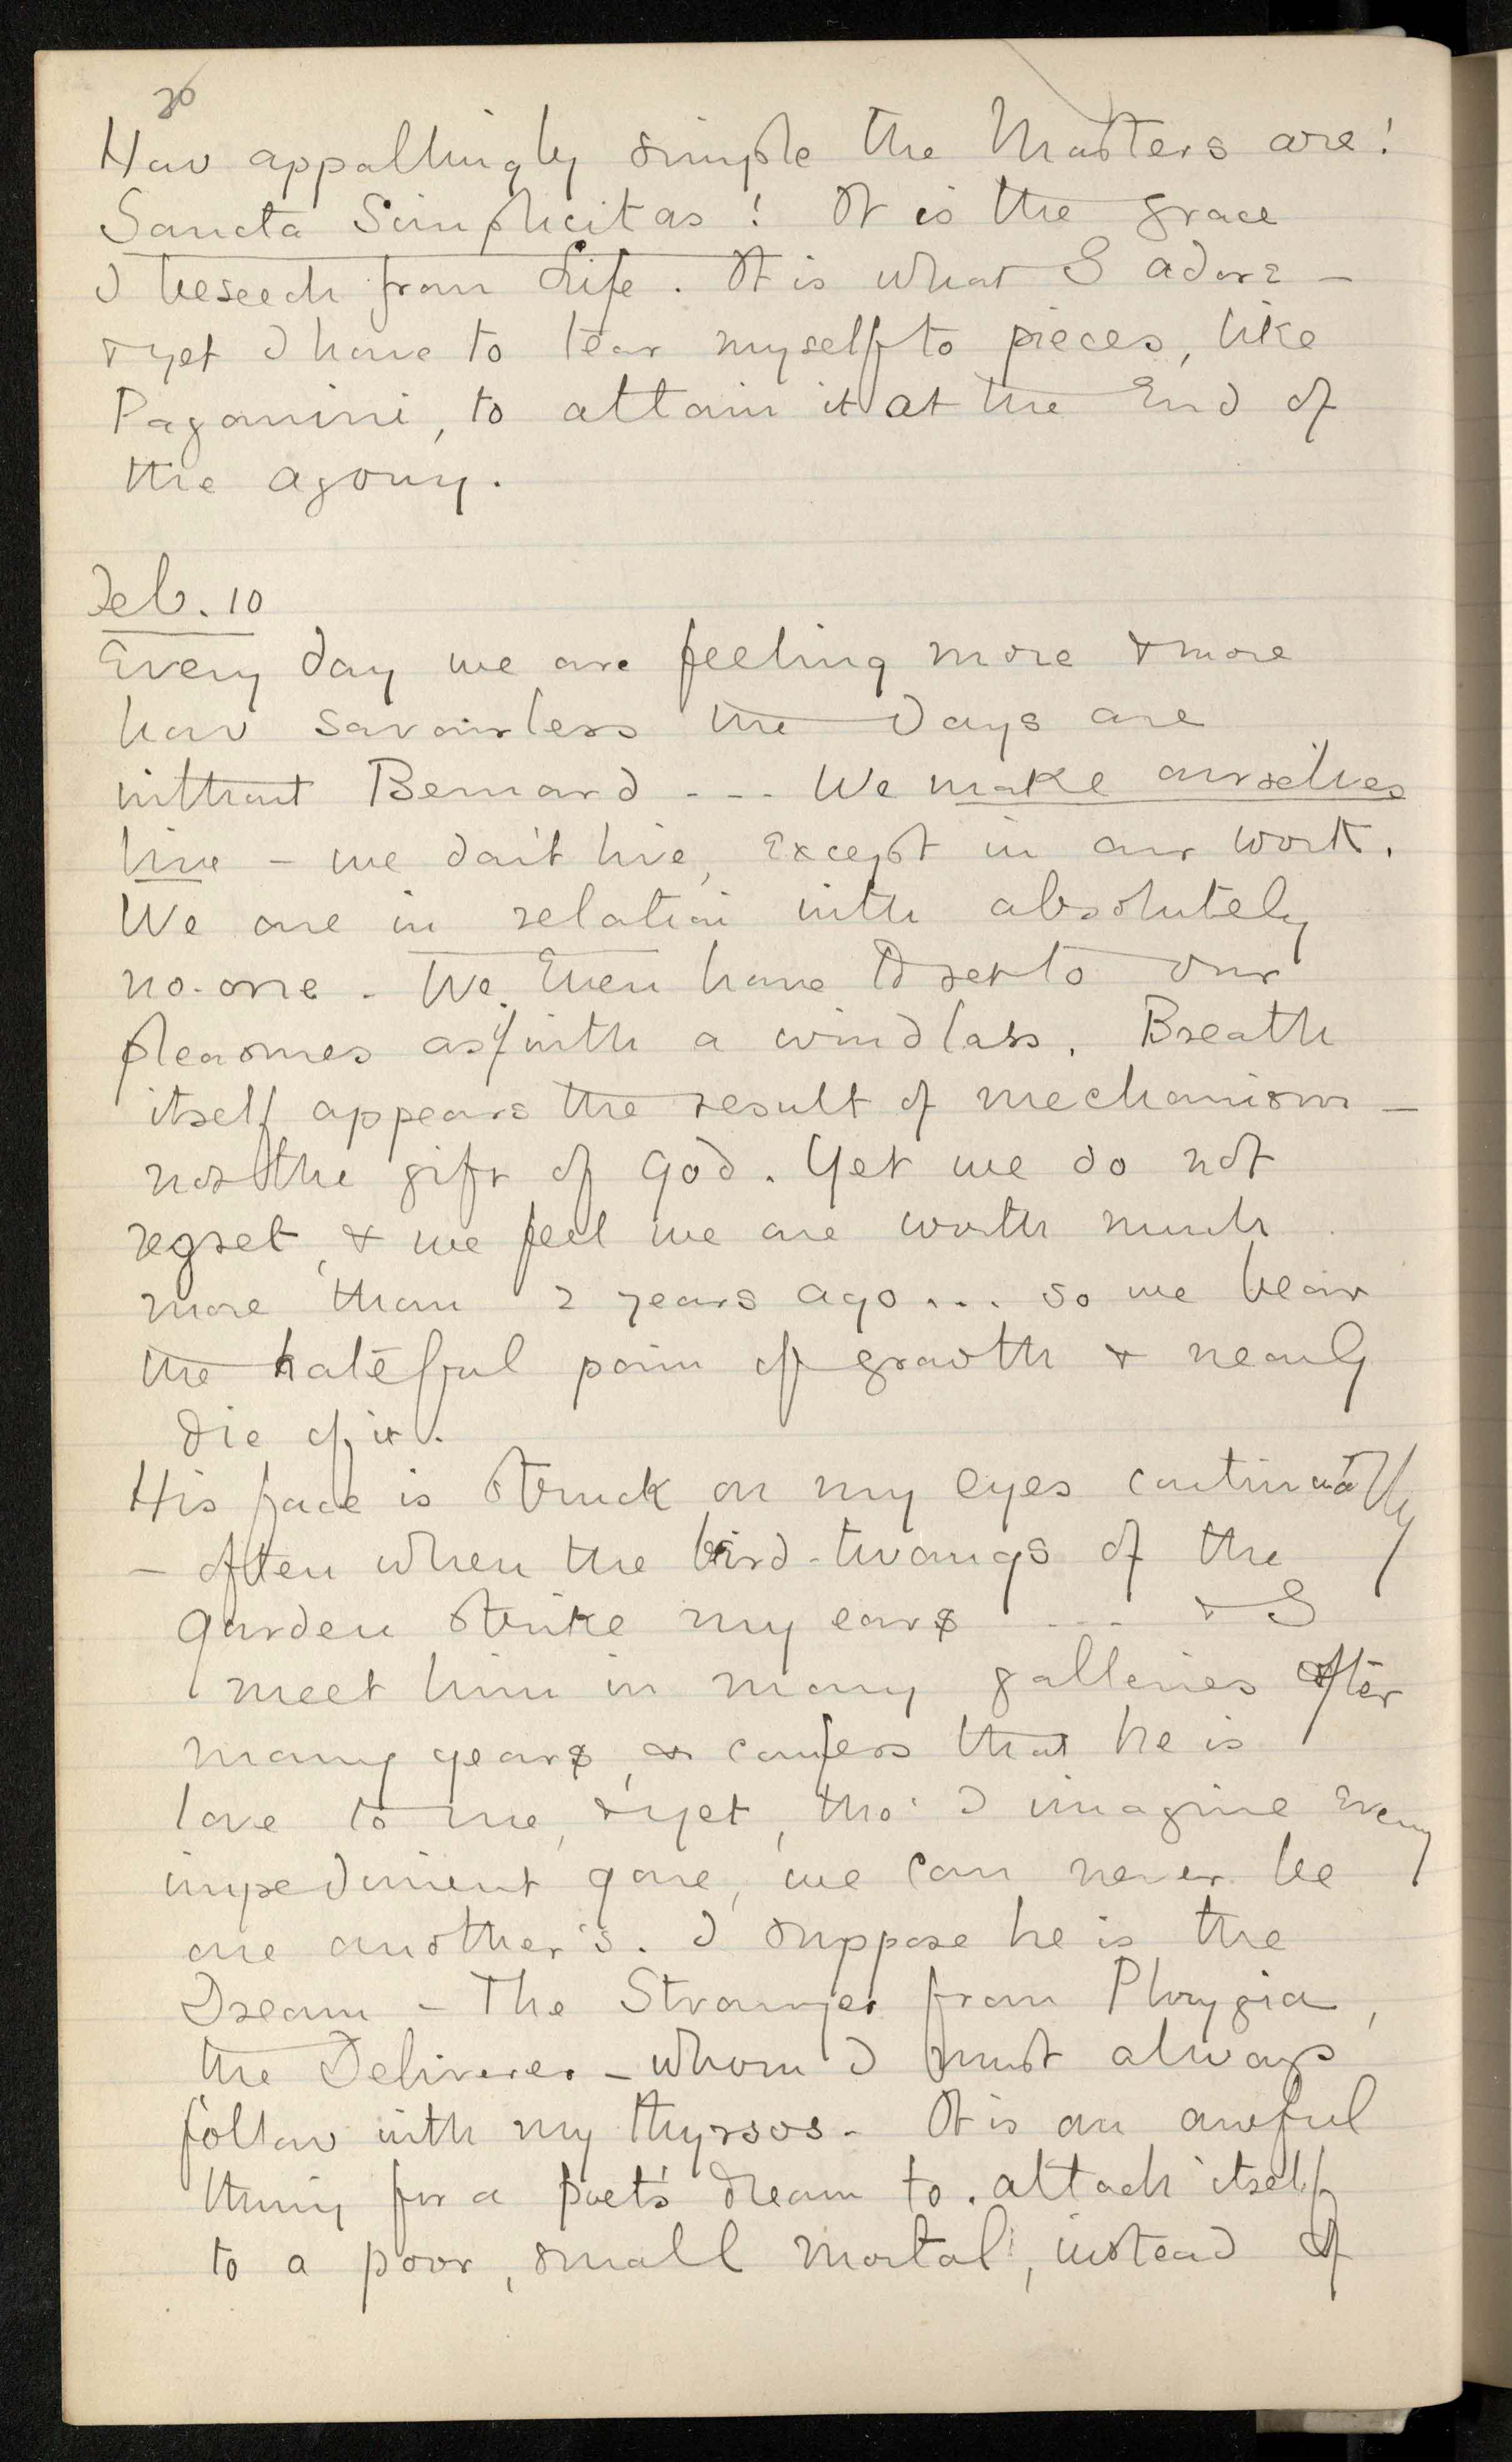 20
How appallingly simple the Masters are!
Sancta Simplicitas! It is the grace
I beseech from Life. It is what I adore –
& yet I have to tear myself to pieces, like
Paganini, to attain it at the End of
the agony.
Feb. 10
Every day we are feeling more & more
how savourless the days are
without Bernard - - - We make ourselves
live – we don't live, Except in our work.
We are in relation with absolutely
no-one. We Even have to set to our
pleasures as if with a windlass. Breath
itself appears the result of mechanism –
not the gift of God. Yet we do not
regret, & we feel we are worth much
more than 2 years ago... so we bear
the hateful pain of growth & nearly
die of it.
His face is struck on my eyes continually
– often when the bird-twangs of the
garden strike my ears - - - & I
meet him in many galleries after
many years, & confess that he is
love to me, & yet, tho' I imagine Every
impediment gone, we can never be
one another's. I suppose he is the
Dream – The Stranger from Phrygia,
the Deliverer – whom I must always
follow with my thyrsos. It is an awful
thing for a poet's dream to attach itself
to a poor, small mortal, instead of